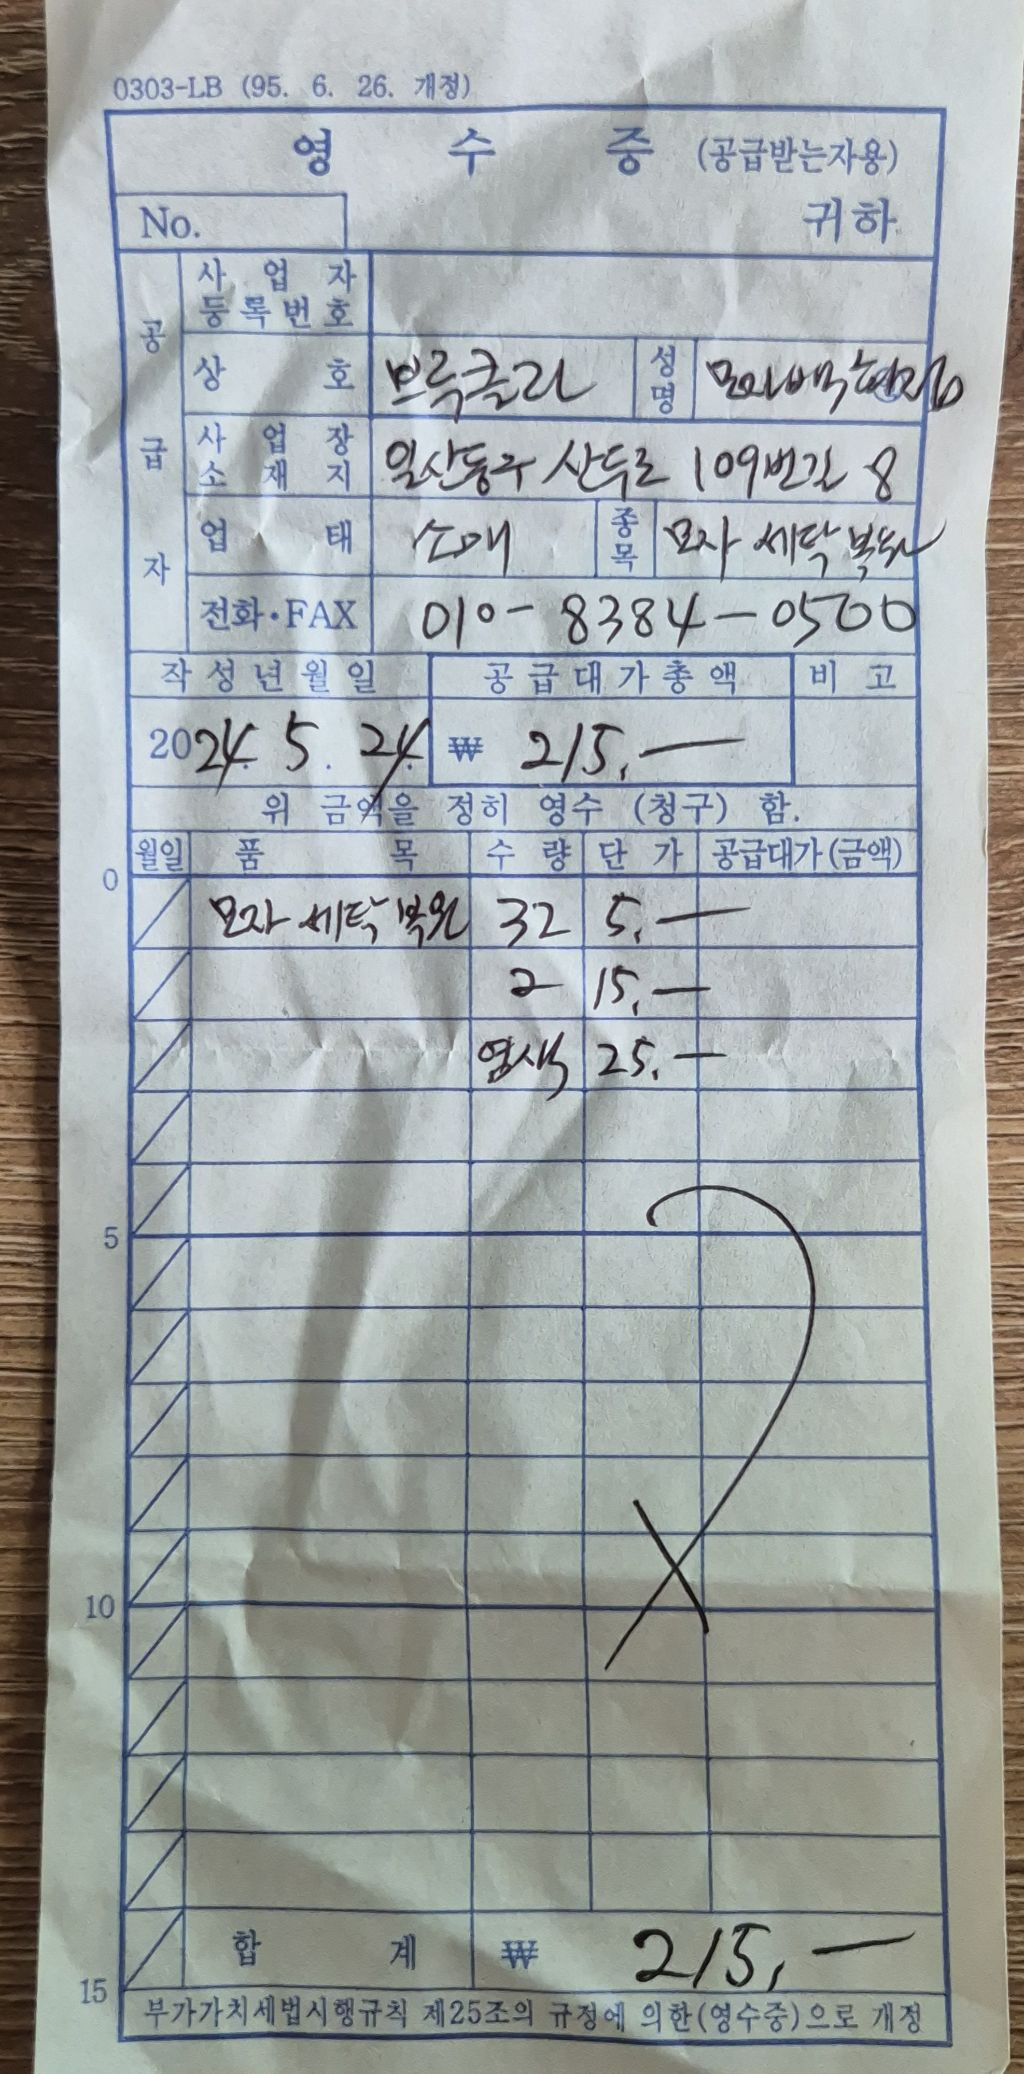 0303-LB (95. 6. 26. 개정)
영 수 증 (공급받는자용)
No. 귀하
공급자
사업자등록번호
상 호 브룩클라 성명
사업장소재지 일산동구 산두로 109번길 8
업 태 소매 종목 모자 세탁 복원
전화·FAX 010-8384-0500
작성년월일 공급대가총액 비고
2024. 5. 24. ₩ 215,—
위 금액을 정히 영수 (청구) 함.
월일 품 목 수 량 단 가 공급대가(금액)
0
모자 세탁 복원 32 5,—
2 15,—
염색 25,—
5
10
합 계 ₩ 215,—
15
부가가치세법시행규칙 제25조의 규정에 의한(영수증)으로 개정